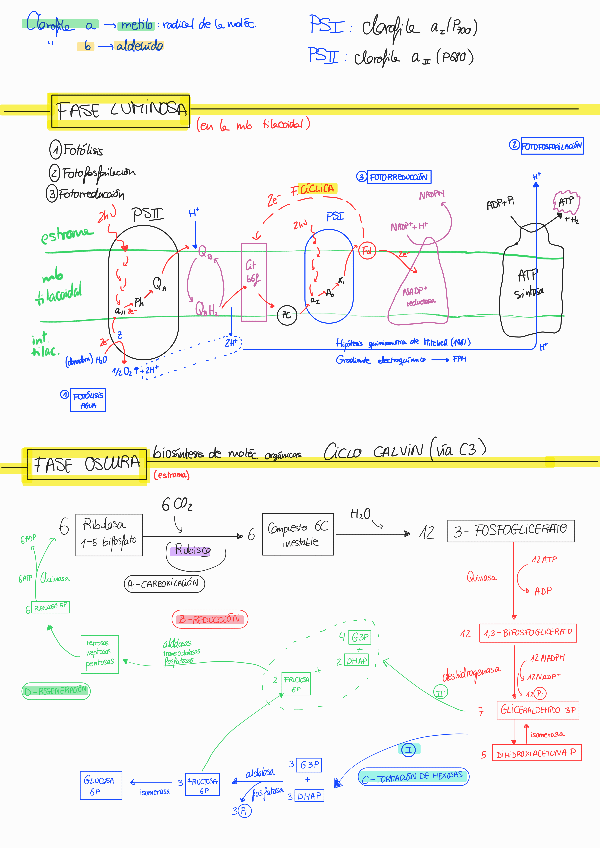 Clorofila a → metilo: radical de la moléc.
" b → aldehído
PSI: clorofila a I (P700)
PSII: clorofila a II (P680)
FASE LUMINOSA
(en la mb tilacoidal)
① Fotólisis
② Fotofosforilación
③ Fotorreducción
② FOTOFOSFORILACIÓN
③ FOTORREDUCCIÓN
F. CÍCLICA
2e-
2hν
PSII
H+
PSI
2hν
NADPH
NADP+ + H+
ADP+Pi
ATP
+ H2O
H+
estroma
mb tilacoidal
int tilac.
QA
QB
QBH2
Ph
aII
2e-
Cit b6f
PC
aI
A0
A1
Fd
2e-
NADP+ reductasa
ATP sintasa
Z
2e-
(donadora) H2O
1/2 O2 ↑ + 2H+
2H+
Hipótesis quimiosmótica de Mitchell (1961)
Gradiente electroquímico → FPM
H+
① FOTÓLISIS AGUA
FASE OSCURA
biosíntesis de moléc orgánicas
CICLO CALVIN (vía C3)
(estroma)
6 CO2
6 Ribulosa 1-5 bifosfato
Rubisco
6 Compuesto 6C inestable
H2O
12 3-FOSFOGLICERATO
A-CARBOXILACIÓN
6ADP
6ATP
Quinasa
6 RIBULOSA 5P
Quinasa
12ATP
ADP
B-REDUCCIÓN
12 1,3-BIFOSFOGLICERATO
4 G3P
+
2 DHAP
aldolasas
transcetolasas
fosfatasas
hexosas
heptosas
pentosas
2 FRUCTOSA 6P
deshidrogenasa
12 NADPH
12 NADP+
12 Pi
D-REGENERACIÓN
II
7 GLICERALDEHIDO 3P
isomerasa
5 DIHIDROXIACETONA P
I
C-FORMACIÓN DE HEXOSAS
3 G3P
+
3 DHAP
aldolasa
fosfatasa
3 Pi
3 FRUCTOSA 6P
isomerasa
GLUCOSA 6P